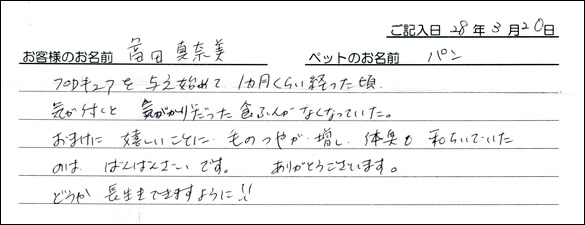 ご記入日 28年3月20日
お客様のお名前 高田 真奈美 ペットのお名前 パン
プロキュアを与え始めて、1ヵ月くらい経った頃、
気が付くと 気がかりだった食ふんがなくなっていた。
おまけに 嬉しいことに、毛のつやが増し、体臭も和らいでいた
のは、ばんばんざい です。 ありがとうございます。
どうか 長生きできますように!!